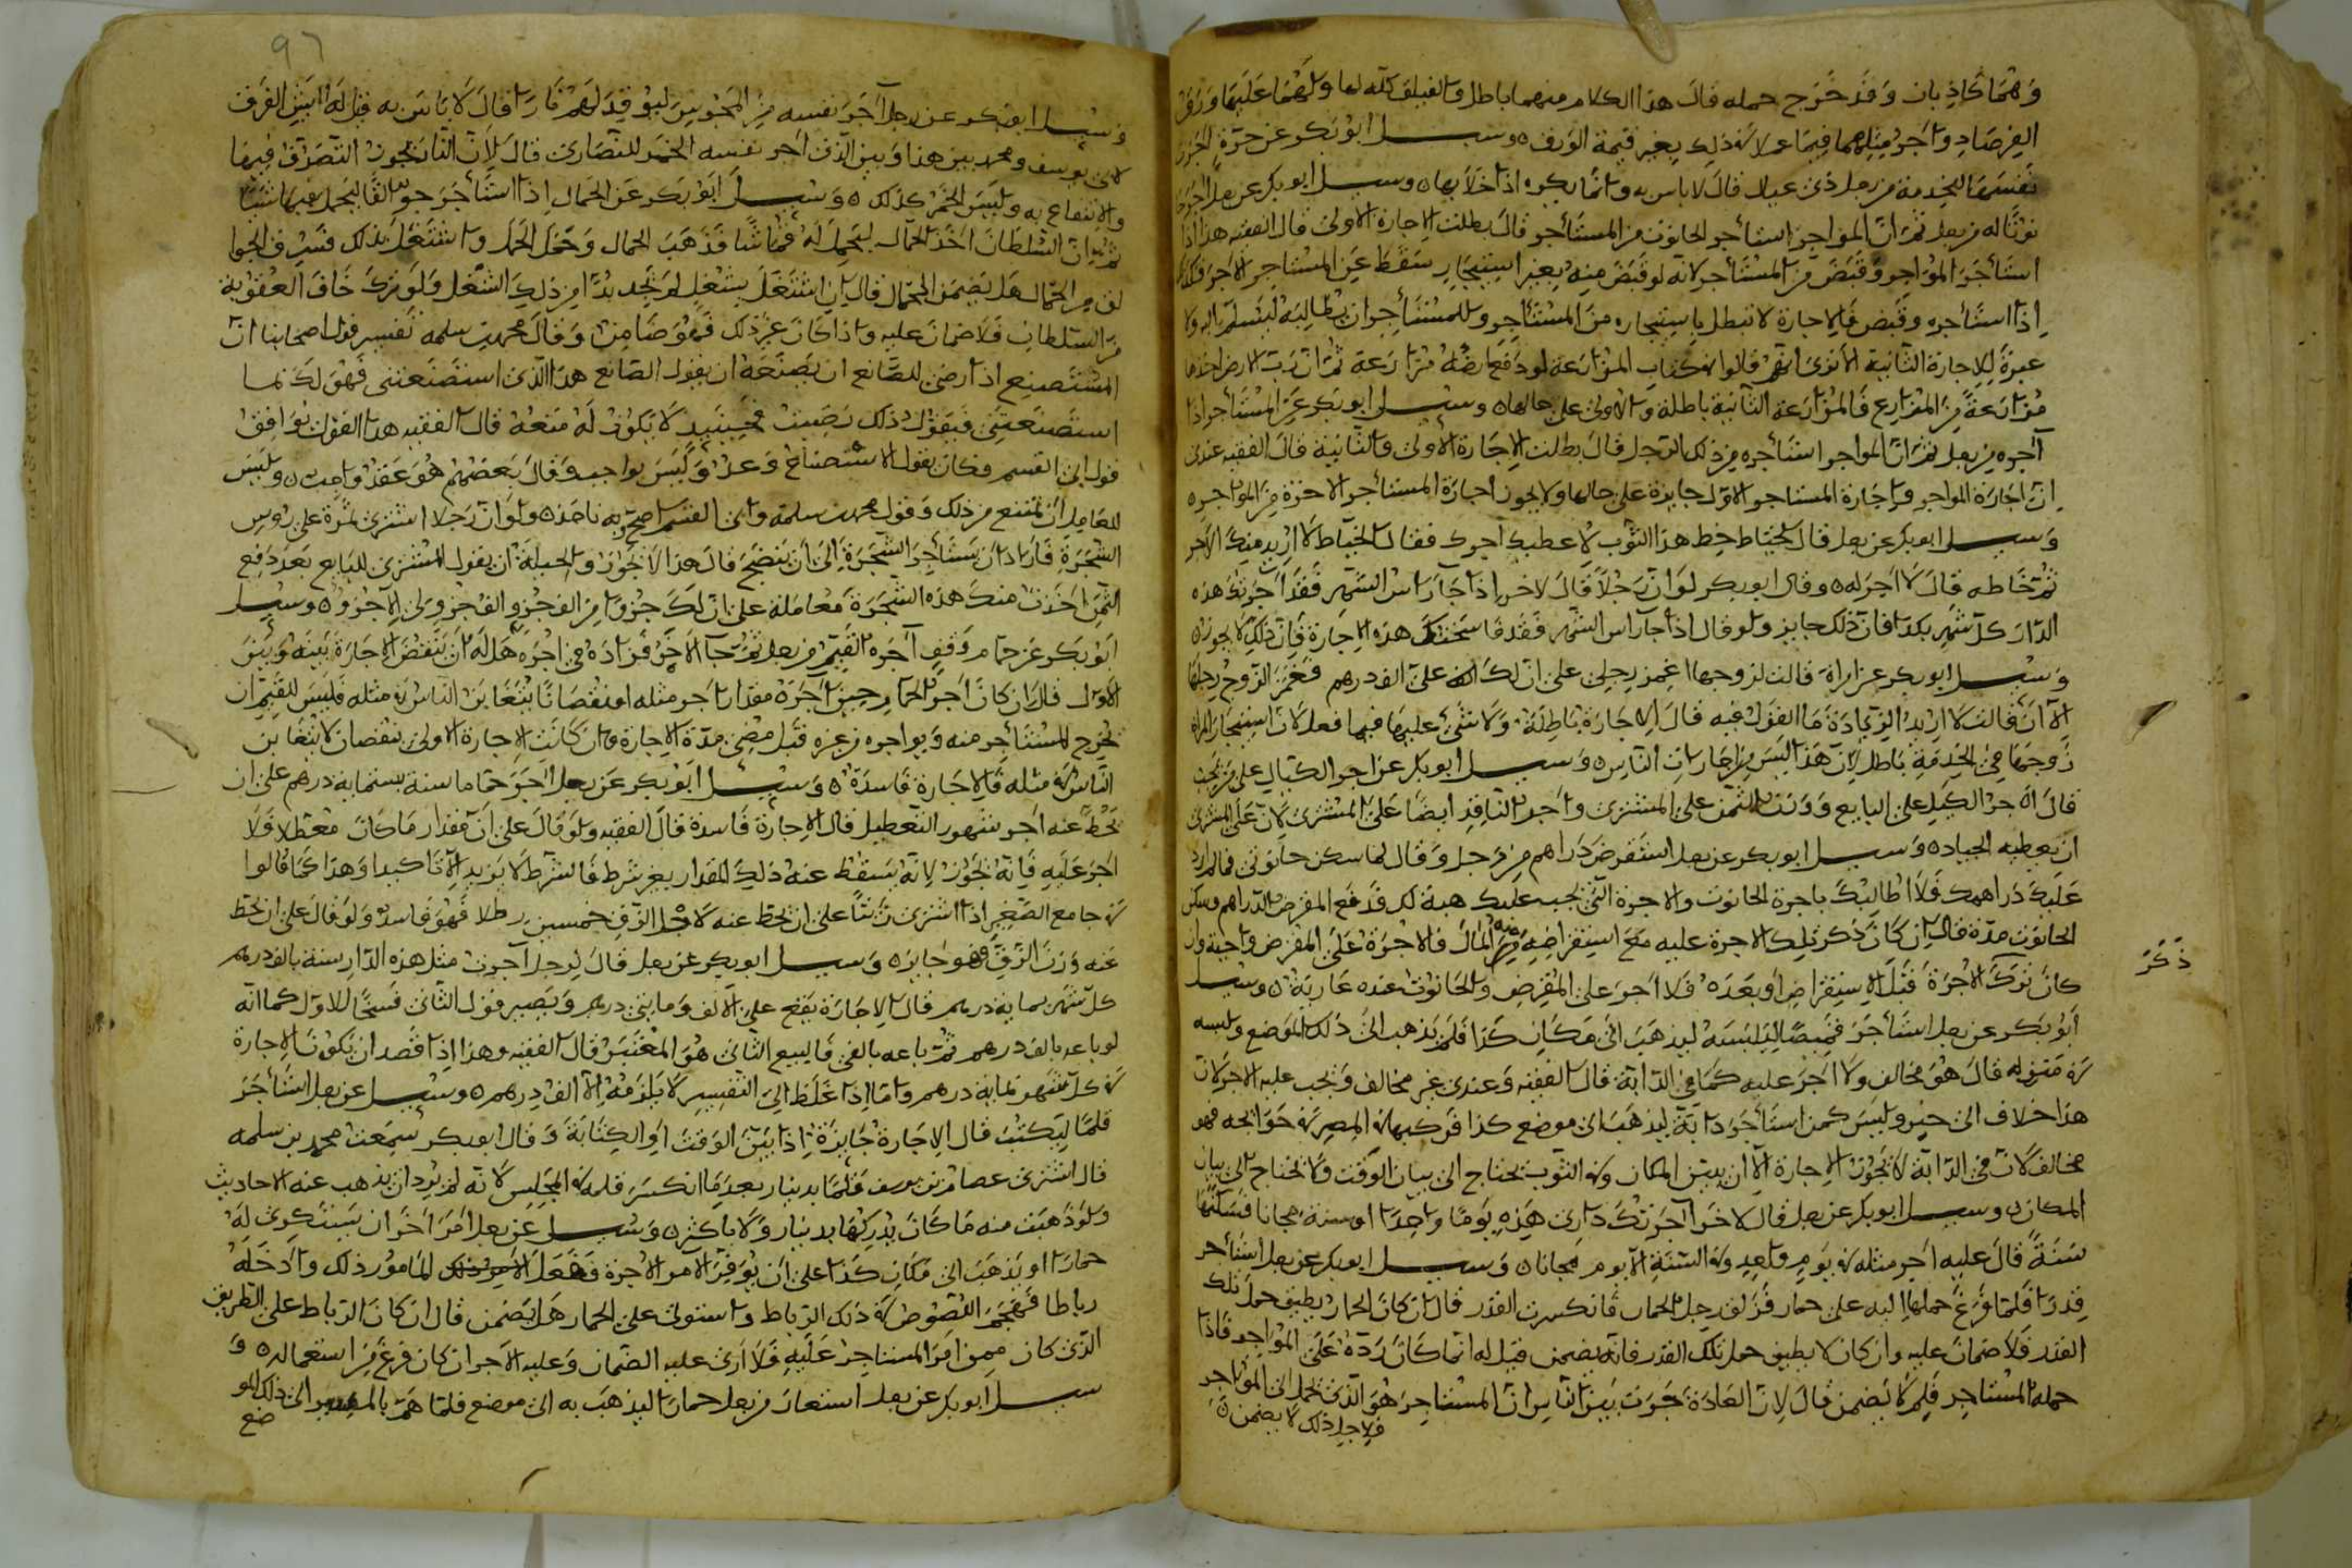 وهما كاذبان وقد خرج حمله قال هذا الكلام منهما باطل والفيلق كله لها ولهما عليها ورق
الفرصاد واجر مثلهما فيما عملا في ذلك بغير قيمة الورق ه وسيل ابو بكر عن حرة اجرت
نفسها للخدمة من رجل ذي عيال قال لا باس به وانما يكره اذا خلا بها ه وسيل ابو بكر عن رجل اجر
ثم ان المواجر استاجر الحانوت من المستأجر قال بطلت الاجارة الاولى قال الفقيه هذا اذا
استأجر المؤاجر وقبض من المستأجر لانه لو قبض منه بغير استيجار سقط عن المستاجر الاجر فكذلك
اذا استأجره وقبض فالاجارة لا تبطل باستيجاره من المستأجر وللمستأجر ان يطالبه ليسلم اليه ولا
عبرة للاجارة الثانية الا ترى انهم قالوا في كتاب المزارعة لو دفع ارضه مزارعة ثم ان رب الارض اخذها
مزارعة من المزارع فالمزارعة الثانية باطلة والاولى على حالها ه وسيل ابو بكر عن المستأجر اذا
آجره من رجل ثم ان المواجر استأجره من ذلك الرجل قال بطلت الاجارة الأولى والثانية قال الفقيه عندي
ان اجارة المواجر واجارة المستاجر الاول جايزة على حالها ولا يجوز اجارة المستأجر الاخرة من المواجره
وسيل ابو بكر عن رجل قال لخياط خط هذا الثوب لاعطيك اجرك فقال الخياط لا اريد منك الاجر
ثم خاطه قال لا اجر له ه وقال ابو بكر لو ان رجلا قال لاخر اذا جآ راس الشهر فقد آجرتك هذه
الدار كل شهر بكذا فان ذلك جايز ولو قال اذا جآ راس الشهر فقد فاسختك هذه الاجارة فان ذلك لا يجوز ه
وسيل ابو بكر عن امراة قالت لزوجها اغمز رجلي على ان لك علي الف درهم فغمز الزوج رجلها
الا ان قالت لا اريد الزيادة ما القول فيه قال الاجارة باطلة ولا شئ عليها فيما فعل لان استيجار المراة
زوجها في الخدمة باطل لان هذا ليس من اجارات الناس ه وسيل ابو بكر عن اجر الكيال على من يجب
قال اجر الكيل على البايع ووزن الثمن على المشتري واجر الناقد ايضا على المشتري لان على المشتري
ان يعطيه الجياد ه وسيل ابو بكر عن رجل استقرض دراهم من رجل وقال لها سكن حانوتي فما لم ارد
عليك دراهمك فلا اطالبك باجرة الحانوت والاجرة التي تجب عليك هبة لك فدفع المقرض الدراهم وسكن
الحانوت مدة قال ان كان ذكر تلك الاجرة عليه مع استقراضه منه المال فالاجرة على المقرض واجبة وان
كان ترك الاجرة قبل الاستقراض او بعده فلا اجر على المقرض والحانوت عنده عارية ه وسيل
ابو بكر عن رجل استأجر قميصا ليلبسه ليذهب الى مكان كذا فلم يذهب الى ذلك الموضع ولبسه
في منزله قال هو مخالف ولا اجر عليه كما في الدابة قال الفقيه وعندي غير مخالف ويجب عليه الاجر لان
هذا خلاف الى خير وليس كمن استأجر دابة ليذهب الى موضع كذا فركبها في المصر في حوايجه فهو
مخالف لان في الدابة لا تجوز الاجارة الا ان يبين المكان وفي الثوب يحتاج الى بيان الوقت ولا يحتاج الى بيان
المكان ه وسيل ابو بكر عن رجل قال لاخر آجرتك داري هذه يوما واحدا او سنة مجانا فسكنها
سنة قال عليه اجر مثله في يوم واحد وفي السنة الا يوم مجانا ه وسيل ابو بكر عن رجل استأجر
قدرا فلما فرغ حملها اليه على حمار فزلق رجل الحمار فانكسرت القدر قال ان كان الحمار يطيق حمل تلك
القدر فلا ضمان عليه وان كان لا يطيق حمل تلك القدر فانه يضمن قيل له انما كان رده على المواجر فاذا
حمله المستاجر فلم لا يضمن قال لان العادة جرت بين الناس ان المستاجر هو الذي يحمل الى المؤاجر
فلاجل ذلك لا يضمن ه
ذكر
٩٦
وسيل ابو بكر عن رجل آجر نفسه من المجوس ليوقد لهم نارا قال لا باس به قيل له ايش الفرق
لابي يوسف ومحمد بين هذا وبين الذي اجر نفسه الخمر للنصارى قال لان النار يجوز التصرف فيها
والانتفاع به وليس الخمر كذلك ه وسيل ابو بكر عن الحمال اذا استأجر جوالقا ليحمل فيها شيئا
ثم ان السلطان اخذ الحمال ليحمل له قماشا فذهب الحمال وحمل الحمل واشتغل بذلك فسرق الجوا
لق من الحمال هل يضمن الحمال قال ان اشتغل بشغل لم يجد بدا من ذلك الشغل ولو ترك خاف العقوبة
من السلطان فلا ضمان عليه واذا كان غير ذلك فهو ضامن وقال محمد بن سلمة تفسير قول اصحابنا ان
المستصنع اذا رضي للصانع ان يصنعه ان يقول الصانع هذا الذي استصنعتني فهو لك كما
استصنعتني فيقول ذلك رضيت فحينيذ لا يكون له منعه قال الفقيه هذا القول يوافق
قول ابي القسم فكان يقول الاستصناع وعد وليس بواجب وقال بعضهم هو عقد واجب ه وليس
للعامل ان يمتنع من ذلك وقول محمد بن سلمة وابي القسم اصح وبه ناخذ ه ولو ان رجلا اشترى ثمرة على روس
الشجرة فاراد ان يستأجر الشجرة الى ان ينضج قال هذا لا يجوز والحيلة ان يقول المشتري للبايع بعد دفع
الثمن اخذت منك هذه الشجرة معاملة على ان لك جزوا من الف جزو الف جزو ولي الاجزو ه وسيل
ابو بكر عن حمام وقف آجره القيم من رجل ثم جآ اخر فزاده في اجره هل له ان ينقض الاجارة بينه وبين
الاول قال ان كان اجر الحمام حين آجره مقدار اجر مثله او نقصانا يتغابن الناس في مثله فليس للقيم ان
يخرج المستأجر منه ويواجره من غيره قبل مضي مدة الاجارة وان كانت الاجارة الاولى بنقصان لا يتغابن
الناس في مثله فالاجارة فاسدة ه وسيل ابو بكر عن رجل اجر حماما سنة بستماية درهم على ان
يحط عنه اجر شهور التعطيل قال الاجارة فاسدة قال الفقيه ولو قال على ان مقدار ما كان معطلا فلا
اجر عليه فانه يجوز لانه يسقط عنه ذلك المقدار بغير شرط فالشرط لا يزيد الا تاكيدا وهذا كما قالوا
في جامع الصغير اذا اشترى زيتا على ان يحط عنه لاجل الزق خمسين رطلا فهو فاسد ولو قال على ان يحط
عنه وزن الزق فهو جايز ه وسيل ابو بكر عن رجل قال لرجل آجرت مثل هذه الدار سنة بالف درهم
كل شهر بماية درهم قال الاجارة يقع على الالف ومايتي درهم ويصير قول الثاني فسخا للاول كما انه
لو باعه بالف درهم ثم باعه بالفي فالبيع الثاني هو المعتبر قال الفقيه وهذا اذا قصد ان تكون الاجارة
في كل شهر بماية درهم واما اذا غلظ الى التفسير لا يلزمه الا الف درهم ه وسيل عن رجل استأجر
قلما ليكتب قال الاجارة جايزة اذا بين الوقت او الكتابة وقال ابو بكر سمعت محمد بن سلمه
قال اشترى عصام بن يوسف قلما بدينار بعد ما انكسر قلمه في المجلس لانه لم يرد ان يذهب عنه الاحاديث
ولو ذهبت منه ما كان يدركها بدينار ولا باكثر ه وسيل عن رجل امر اخر ان يستكري له
حمارا او يذهب الى مكان كذا على ان يوفر الآمر الاجرة ففعل المامور ذلك وادخله
رباطا فهجم اللصوص في ذلك الرباط واستولى على الحمار هل يضمن قال ان كان الرباط على الطريق
الذي كان ممن امر المستاجر عليه فلا ارى عليه الضمان وعليه الاجر ان كان فرغ من استعماله ه و
سيل ابو بكر عن رجل استعار من رجل حمارا ليذهب به الى موضع فلما هم بالمسير الى ذلك المو
ضع